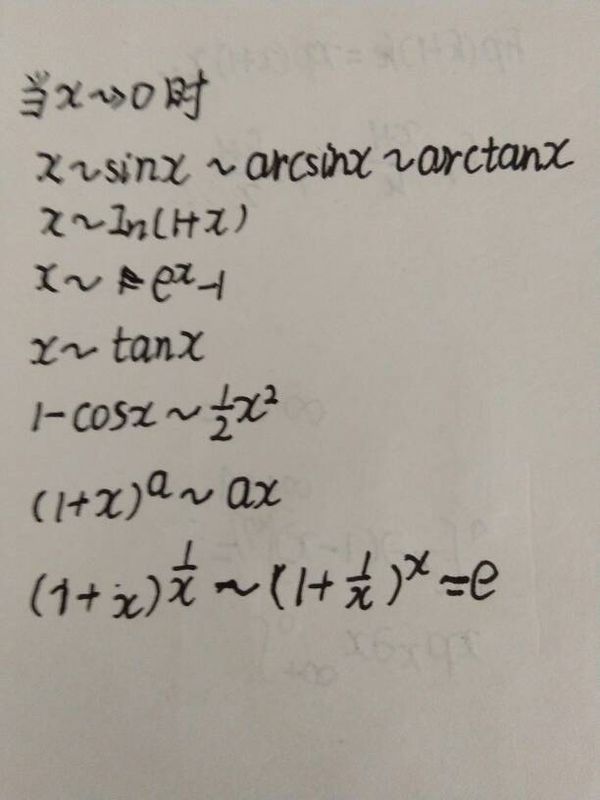 当x~>0时
x~sinx~arcsinx~arctanx
x~In(1+x)
x~e^x-1
x~tanx
1-cosx~½x²
(1+x)^a~ax
(1+x)^(1/x)~(1+1/x)^x=e